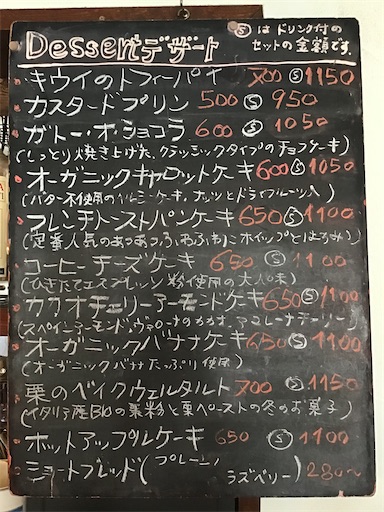 Dessert デザート
Ⓢ は ドリンク付の
セットの金額です。
キウイのトフィーパイ 700 Ⓢ 1150
カスタードプリン 500 Ⓢ 950
ガトー・オ・ショコラ 600 Ⓢ 1050
(しっとり焼き上げた、クラッシックタイプのチョコケーキ)
オーガニックキャロットケーキ 600 Ⓢ 1050
(バター不使用のヘルシーケーキ、ナッツとドライフルーツ入)
フレンチトーストパンケーキ 650 Ⓢ 1100
(定番人気のあつあつ、ふわふわにホイップとはちみつ)
コーヒーチーズケーキ 650 Ⓢ 1100
(ひきたてエスプレッソ粉使用の大人味)
カカオチェリーアーモンドケーキ 650 Ⓢ 1100
(スペインアーモンド、ヴァローナのカカオ、アマレーナチェリー)
オーガニックバナナケーキ 650 Ⓢ 1100
(オーガニックバナナたっぷり使用)
栗のベイクウェルタルト 700 Ⓢ 1150
(イタリア産BIOの栗粉と栗ペーストの冬のお菓子)
ホットアップルケーキ 650 Ⓢ 1100
ショートブレッド(プレーン、ラズベリー) 280〜